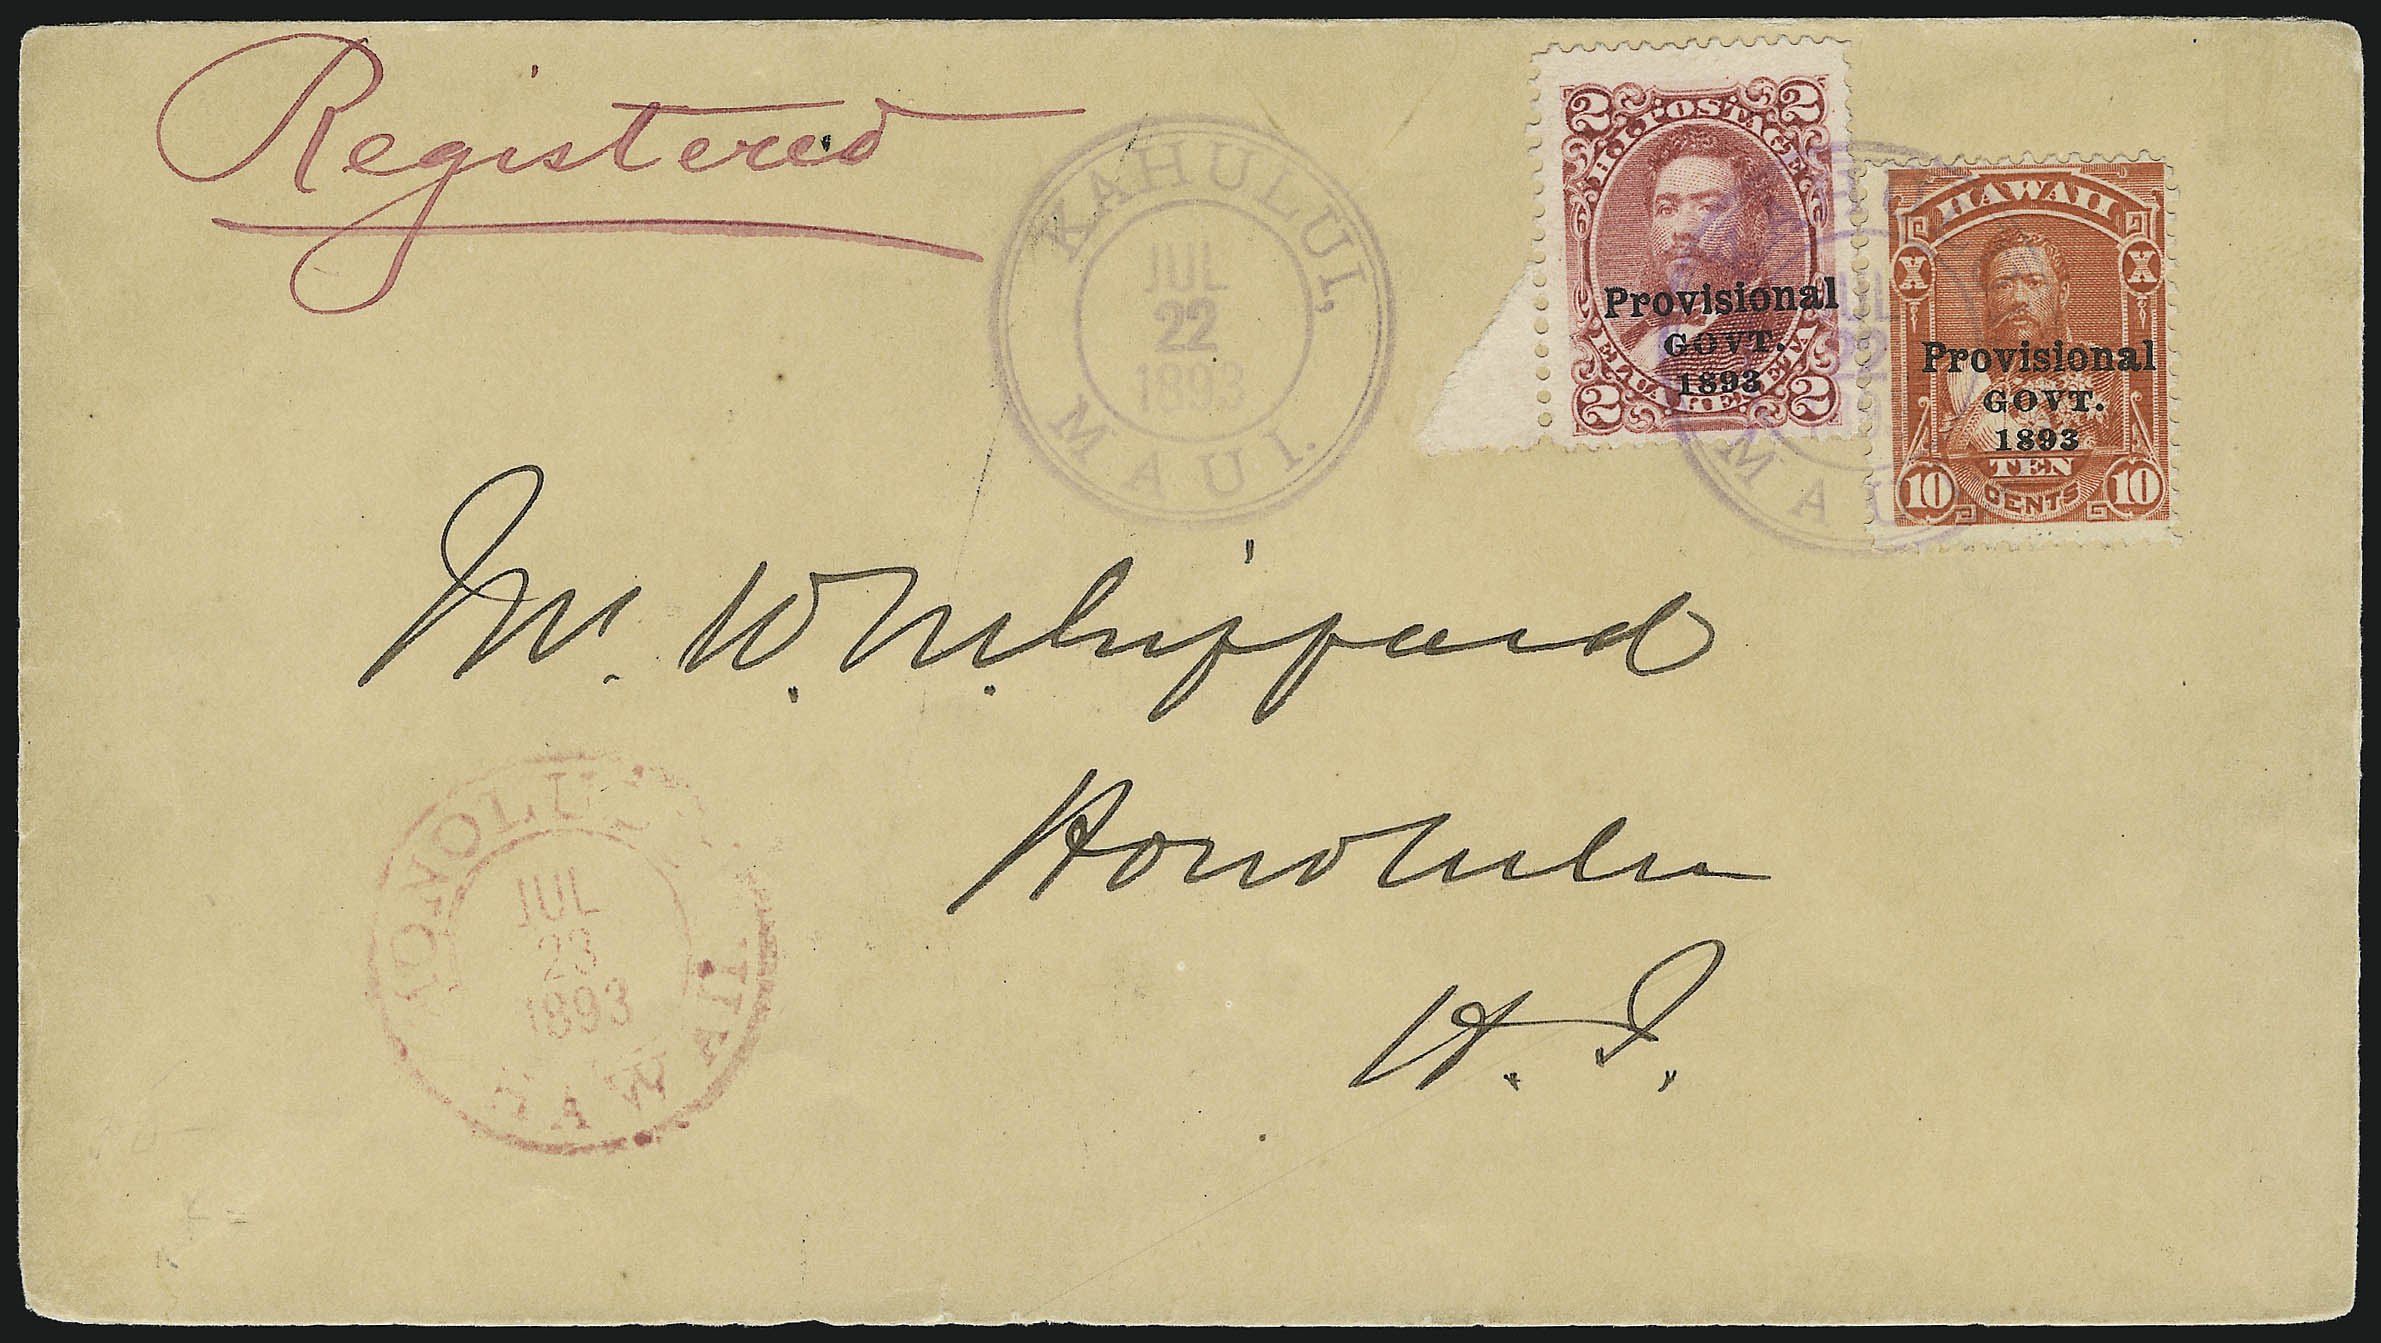 Registered
KAHULUI,
JUL
22
1893
MAUI.
2 HOI POSTAGE 2
Provisional
GOVT.
1893
2 ELUA KENETA 2
HAWAII
X X
Provisional
GOVT.
1893
TEN
10 CENTS 10
JUL
22
MAU
Mr. W. M. Whippard
Honolulu
H. I.
HONOLULU
JUL
23
1893
HAWAII